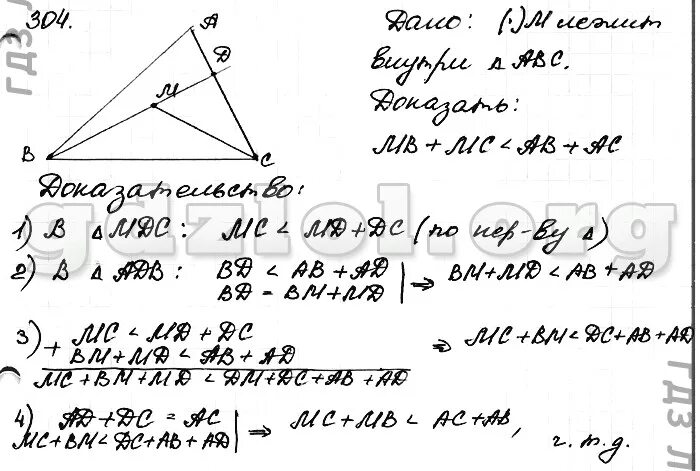 304.
A
D
M
B
C
Дано: (·) M лежит
внутри △ ABC.
Доказать:
MB + MC < AB + AC
Доказательство:
1) В △ MDC: MC < MD + DC (по нер-ву △)
2) В △ ADB: BD < AB + AD
BD = BM + MD | ⇒ BM + MD < AB + AD
3) + MC < MD + DC
BM + MD < AB + AD
MC + BM + MD < DM + DC + AB + AD
⇒ MC + BM < DC + AB + AD
4) AD + DC = AC
MC + BM < DC + AB + AD | ⇒ MC + MB < AC + AB,
ч. т. д.
gdzlol.org
ГДЗ Л
ГДЗ Л